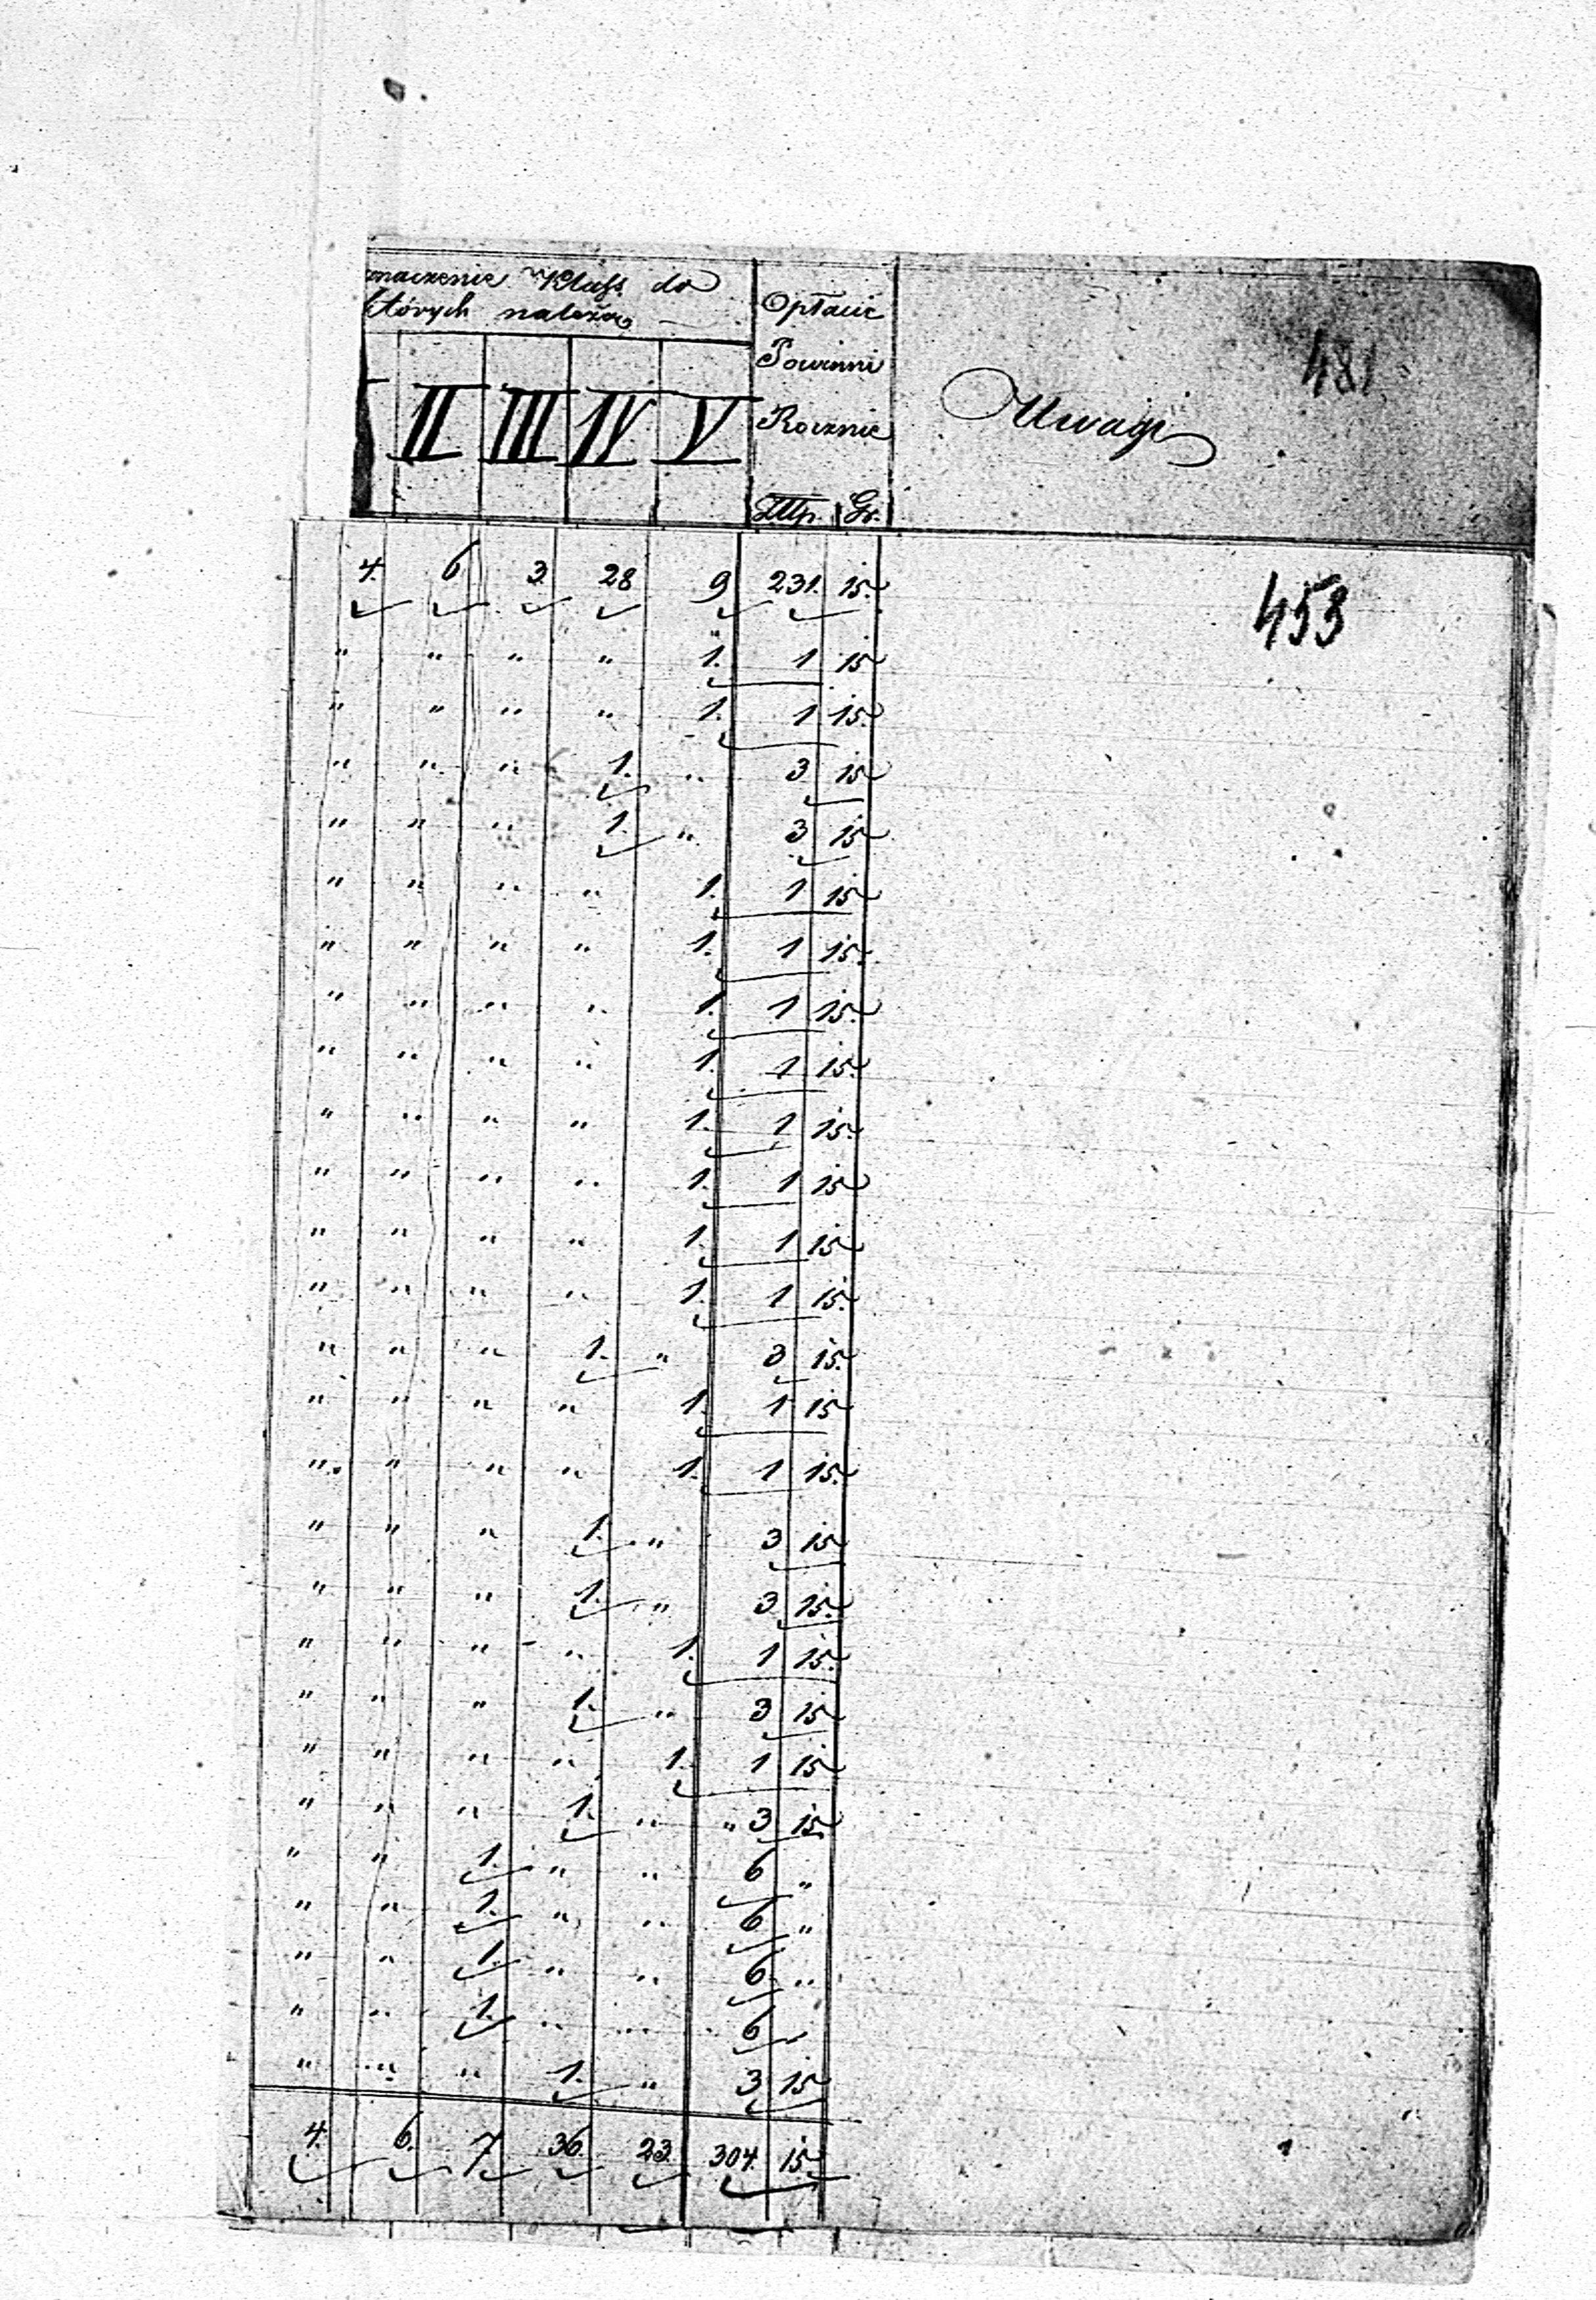 znaczenie Klass. do
których należą
Opłacić
Powinni
Rocznie
Złlp. Gr.
II III IV V
Uwagi
481
453
4. 6 3. 28 9 231. 15.
" " " " 1. 1 15
" " " " 1. 1 15.
" " " 1. " 3 15
" " " 1. " 3 15
" " " " 1. 1 15
" " " " 1. 1 15.
" " " " 1. 1 15.
" " " " 1. 1 15.
" " " " 1. 1 15.
" " " " 1. 1 15
" " " " 1. 1 15
" " " " 1. 1 15.
" " " 1. " 3 15.
" " " " 1. 1 15
" " " " 1. 1 15.
" " " 1. " 3 15
" " " 1. " 3 15.
" " " " 1. 1 15.
" " " 1. " 3 15
" " " " 1. 1 15
" " " 1. " " 3 15
" " 1. " " 6 "
" " 1. " " 6 "
" " 1. " " 6 "
" " 1. " " 6 "
" " " 1. " 3 15
4. 6. 7 36. 23. 304. 15